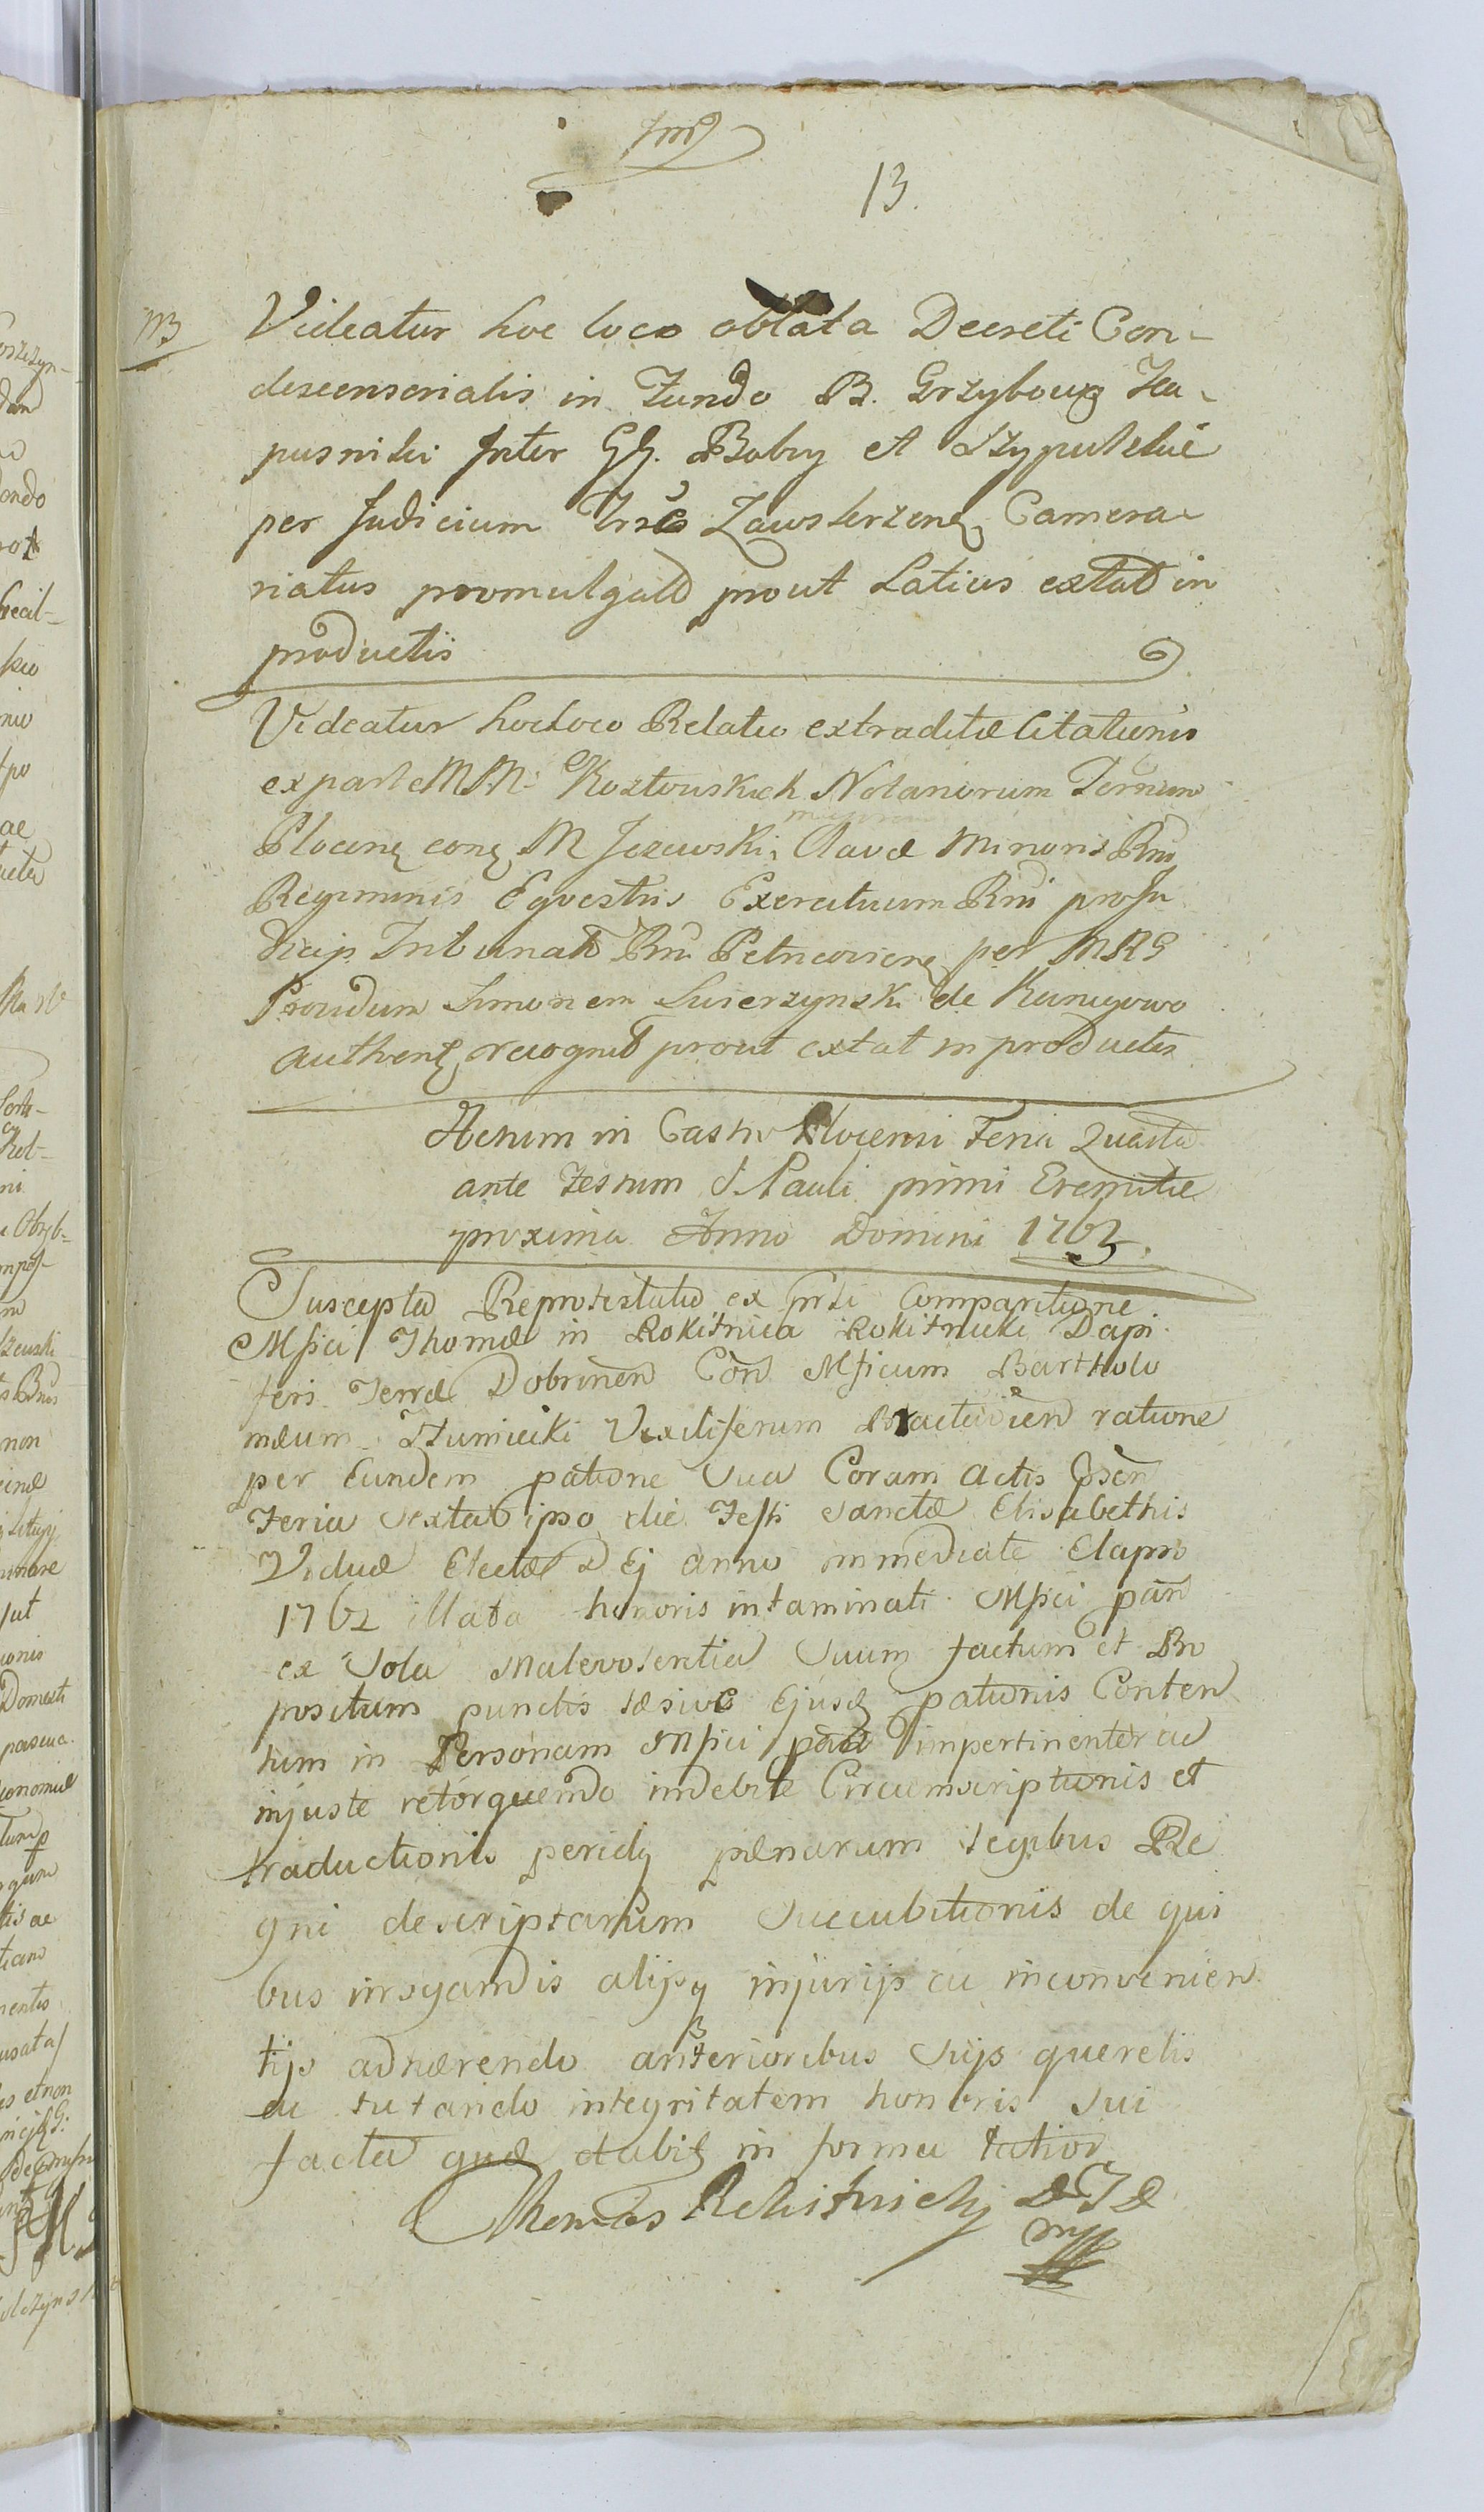 13.
NB
Videatur hoc loco oblata Decreti Con-
descensorialis in Fundo B. Grzybowo Ka-
pusniki Inter GG. Bobry et Szypulskie
per Judicium Zawskrzen Camera-
riatus promulgat prout Latius extat in
productis
Videatur hocloco Relatio extraditæ Citationis
ex parte MM. Kozłowskich Notariorum Terrium
Plocen con M Jezewski Clavæ Minoris Rni
Regiminis Equestris Exercituum Rni pro Ju
dicijs Tribunali Rni Petricovien per MRG
Providum Simonem Swierzynski de Kunigowo
authent recognit prout extat in productis
Actum in Castro Plocensi Feria Quarta
ante Festum S. Pauli primi Eremitæ
proxima Anno Domini 1763.
Suscepta Reprotestatio ex prti Comparitione
Mfici Thomæ in Rokitnica Rokitnicki Dapi
feri Terræ Dobrinen Con Mficum Bartholo
mæum ZZumiecki Vexiliferum Bractavien ratione
per Eundem patione Sua Coram Actis psen
Feria Sexta ipso die Festi Sanctæ Elisabethis
Viduæ Electæ anno immediate Elapso
1762 illata honoris intaminati Mfici pan
ex Sola Malevolentia Suum factum et Pro
positum punctis læsive Ejusd pationis Conten
tum in Personam Mfici pan impertinenter ac
injuste retorquendo indebite Circumscriptionis et
traductionis perids pænarum legibus Re
gni descriptarum Succubitionis de qui
bus irrogandis alijsq injurijs ac inconvenien
tijs adhærendo anterioribus Suis querelis
ac tutando integritatem honoris Sui
facta quæ dabit in forma latior
Thomas Rokitnicki DTD
mp